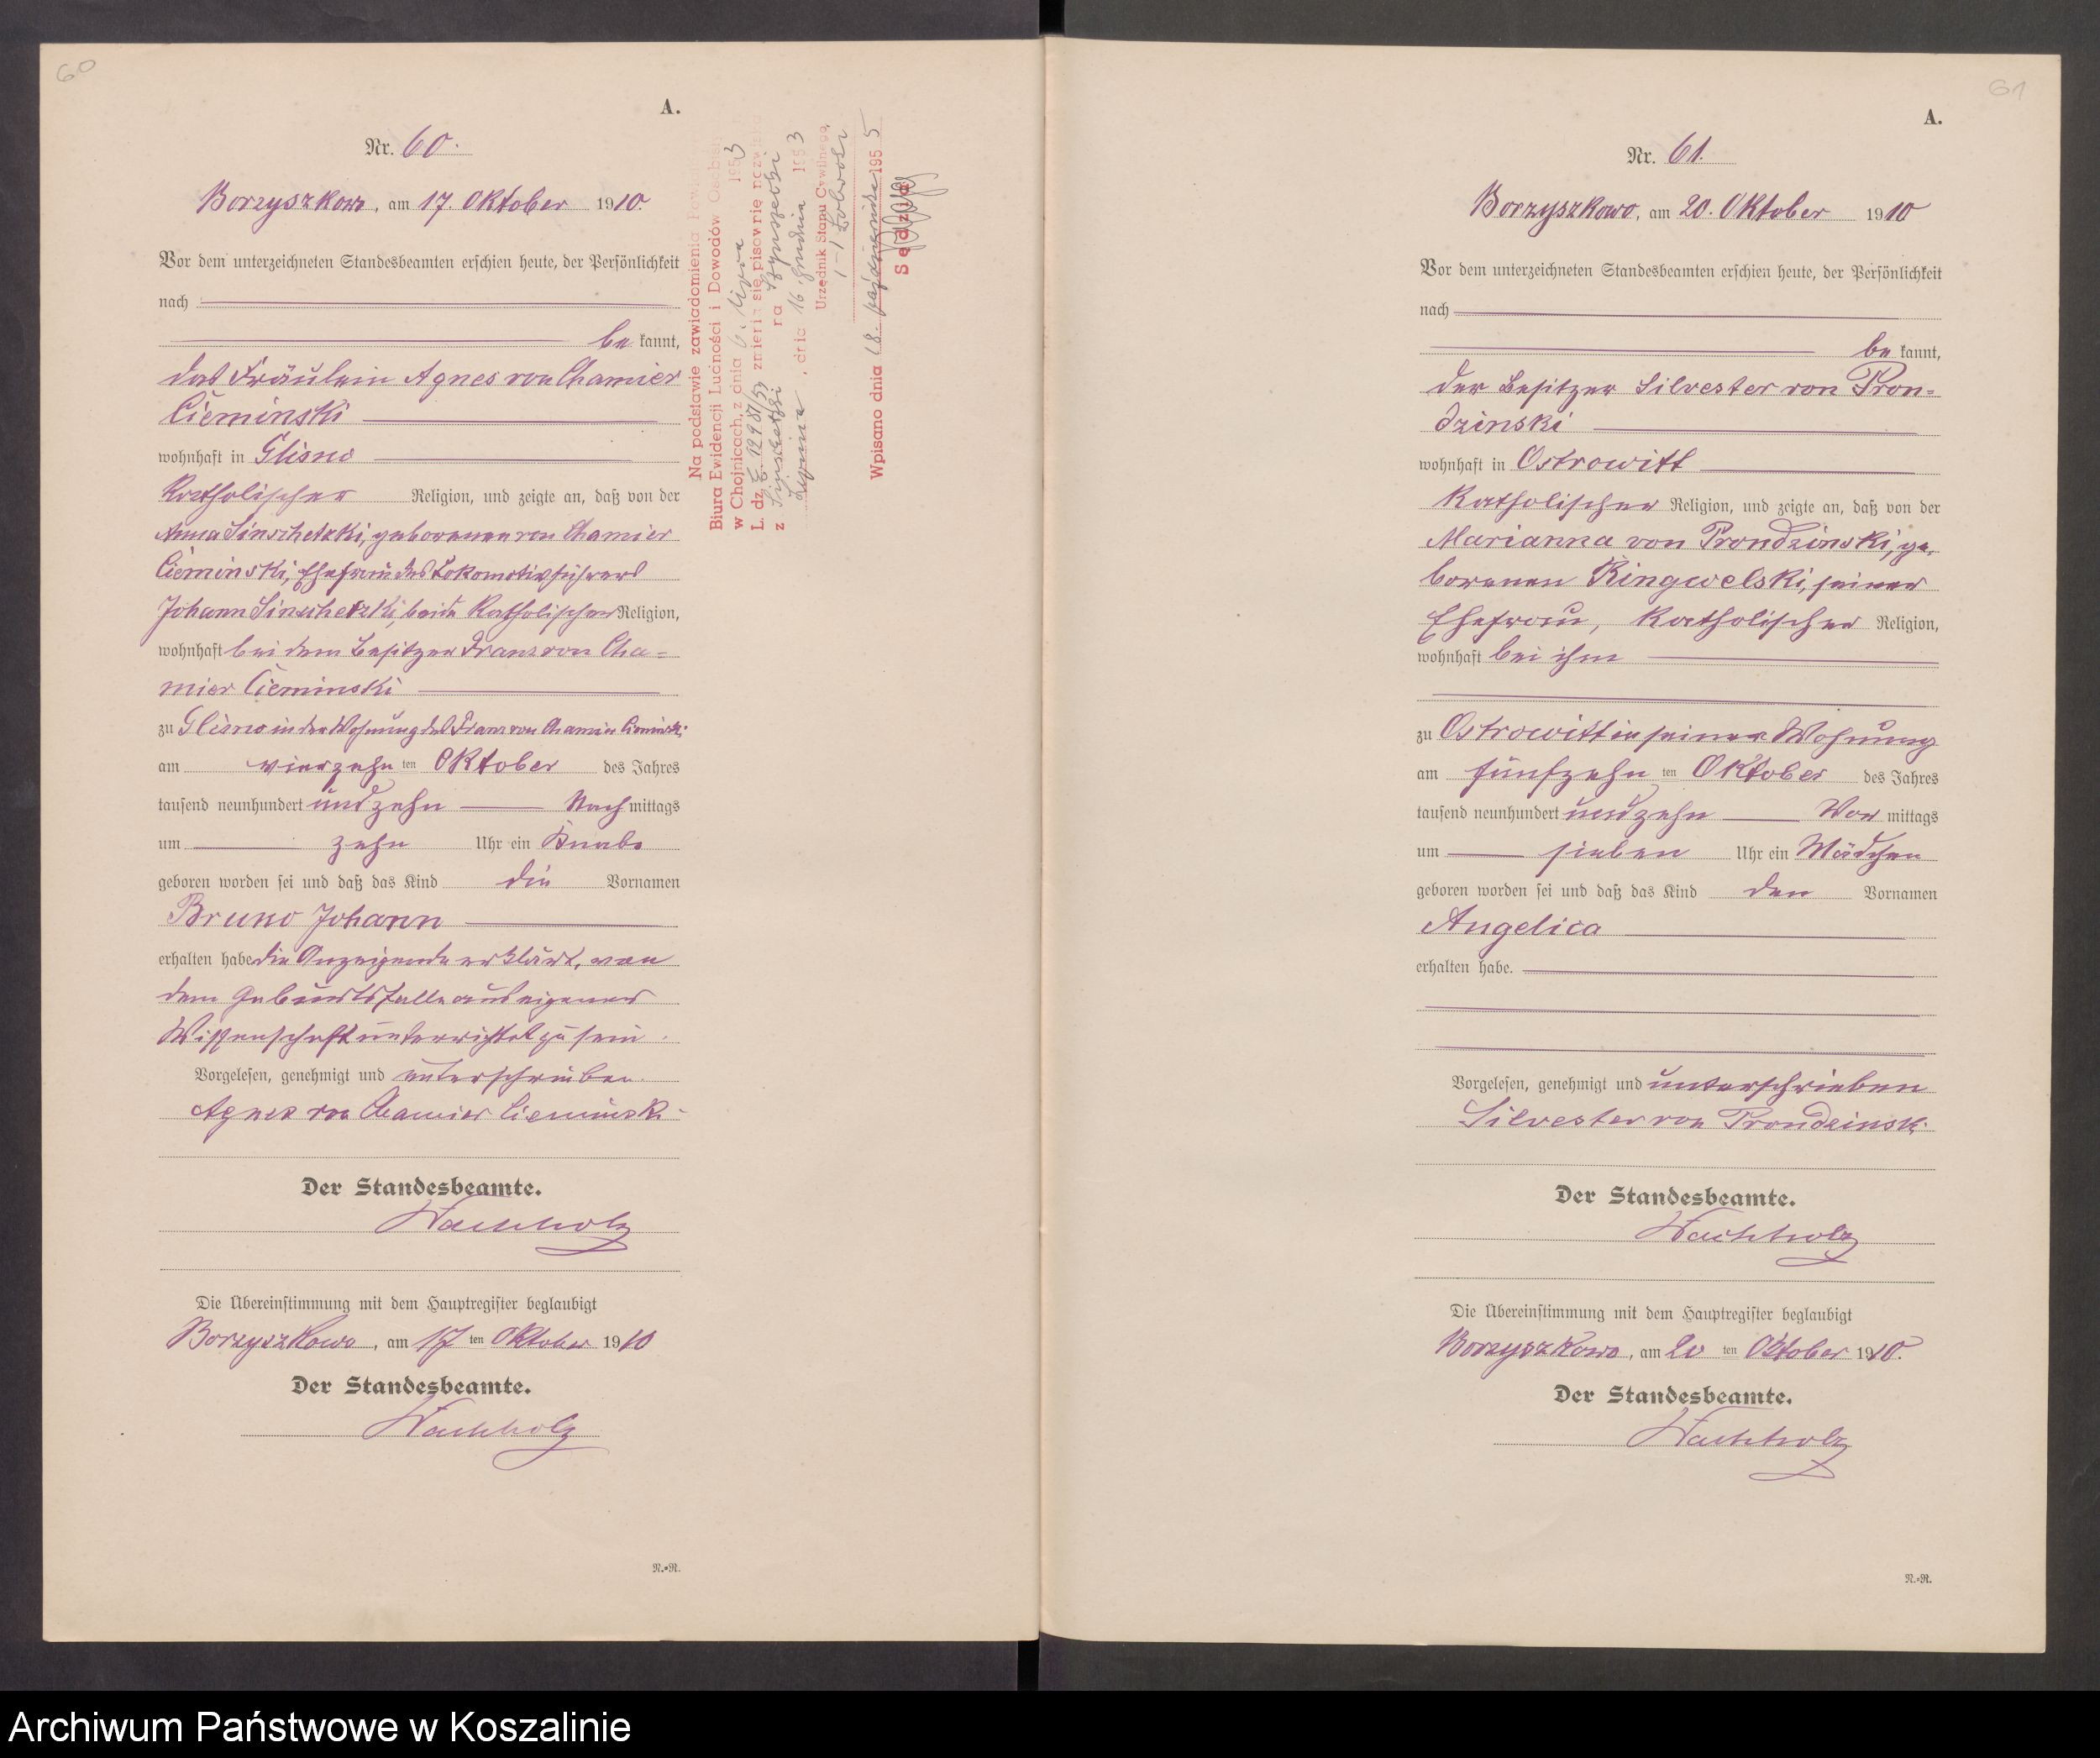 60
A.
Nr. 60.
Borzyszkowo, am 17. Oktober 1910.
Vor dem unterzeichneten Standesbeamten erschien heute, der Persönlichkeit
nach
be kannt,
das Fräulein Agnes von Chamier
Cieminski
wohnhaft in Glisno
katholischer Religion, und zeigte an, daß von der
Anna Sinschetzki, geborenen von Chamier
Cieminski, Ehefrau des Lokomotivführers
Johann Sinschetzki, beide katholischer Religion,
wohnhaft bei dem Besitzer Franz von Cha=
mier Cieminski
zu Glisno in der Wohnung des Franz von Chamier Cieminski
am vierzehn ten Oktober des Jahres
tausend neunhundert und zehn Nach mittags
um zehn Uhr ein Knabe
geboren worden sei und daß das Kind die Vornamen
Bruno Johann
erhalten habe die Anzeigende erklärt, von
dem Geburtsfalle aus eigener
Wissenschaft unterrichtet zu sein.
Vorgelesen, genehmigt und unterschrieben.
Agnes von Chamier Cieminski
Der Standesbeamte.
Wachholz
Die Übereinstimmung mit dem Hauptregister beglaubigt
Borzyszkowo, am 17 ten Oktober 1910
Der Standesbeamte.
Wachholz
N.=R.
Na podstawie zawiadomienia
Biura Ewidencji Ludności i Dowodów
w Chojnicach, z dnia 1953
L. dz. zmienia się pisownię nazwiska
z Sinschetzki na
Lipnica, dnia 16. grudnia 1953
Urzędnik Stanu Cywilnego
Wpisano dnia 18. października 1955
Sędzia
61
A.
Nr. 61.
Borzyszkowo, am 20. Oktober 1910
Vor dem unterzeichneten Standesbeamten erschien heute, der Persönlichkeit
nach
be kannt,
der Besitzer Silvester von Pron=
dzinski
wohnhaft in Ostrowitt
katholischer Religion, und zeigte an, daß von der
Marianna von Prondzinski, ge=
borenen Ringwelski, seiner
Ehefrau, katholischer Religion,
wohnhaft bei ihm
zu Ostrowitt in seiner Wohnung
am fünfzehn ten Oktober des Jahres
tausend neunhundert und zehn Vor mittags
um sieben Uhr ein Mädchen
geboren worden sei und daß das Kind den Vornamen
Angelica
erhalten habe.
Vorgelesen, genehmigt und unterschrieben
Silvester von Prondzinski
Der Standesbeamte.
Wachholz
Die Übereinstimmung mit dem Hauptregister beglaubigt
Borzyszkowo, am 20 ten Oktober 1910.
Der Standesbeamte.
Wachholz
N.=R.
Archiwum Państwowe w Koszalinie